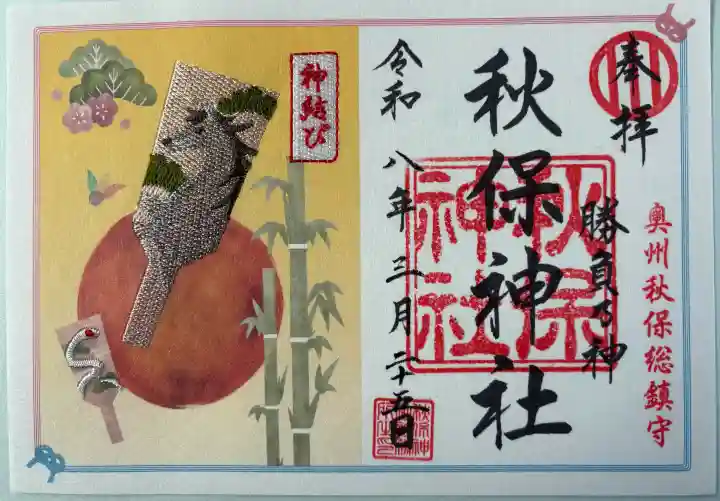 奉拝
奥州秋保総鎮守
勝負の神
秋保神社
秋保
神社
令和八年三月二十五日
神結び